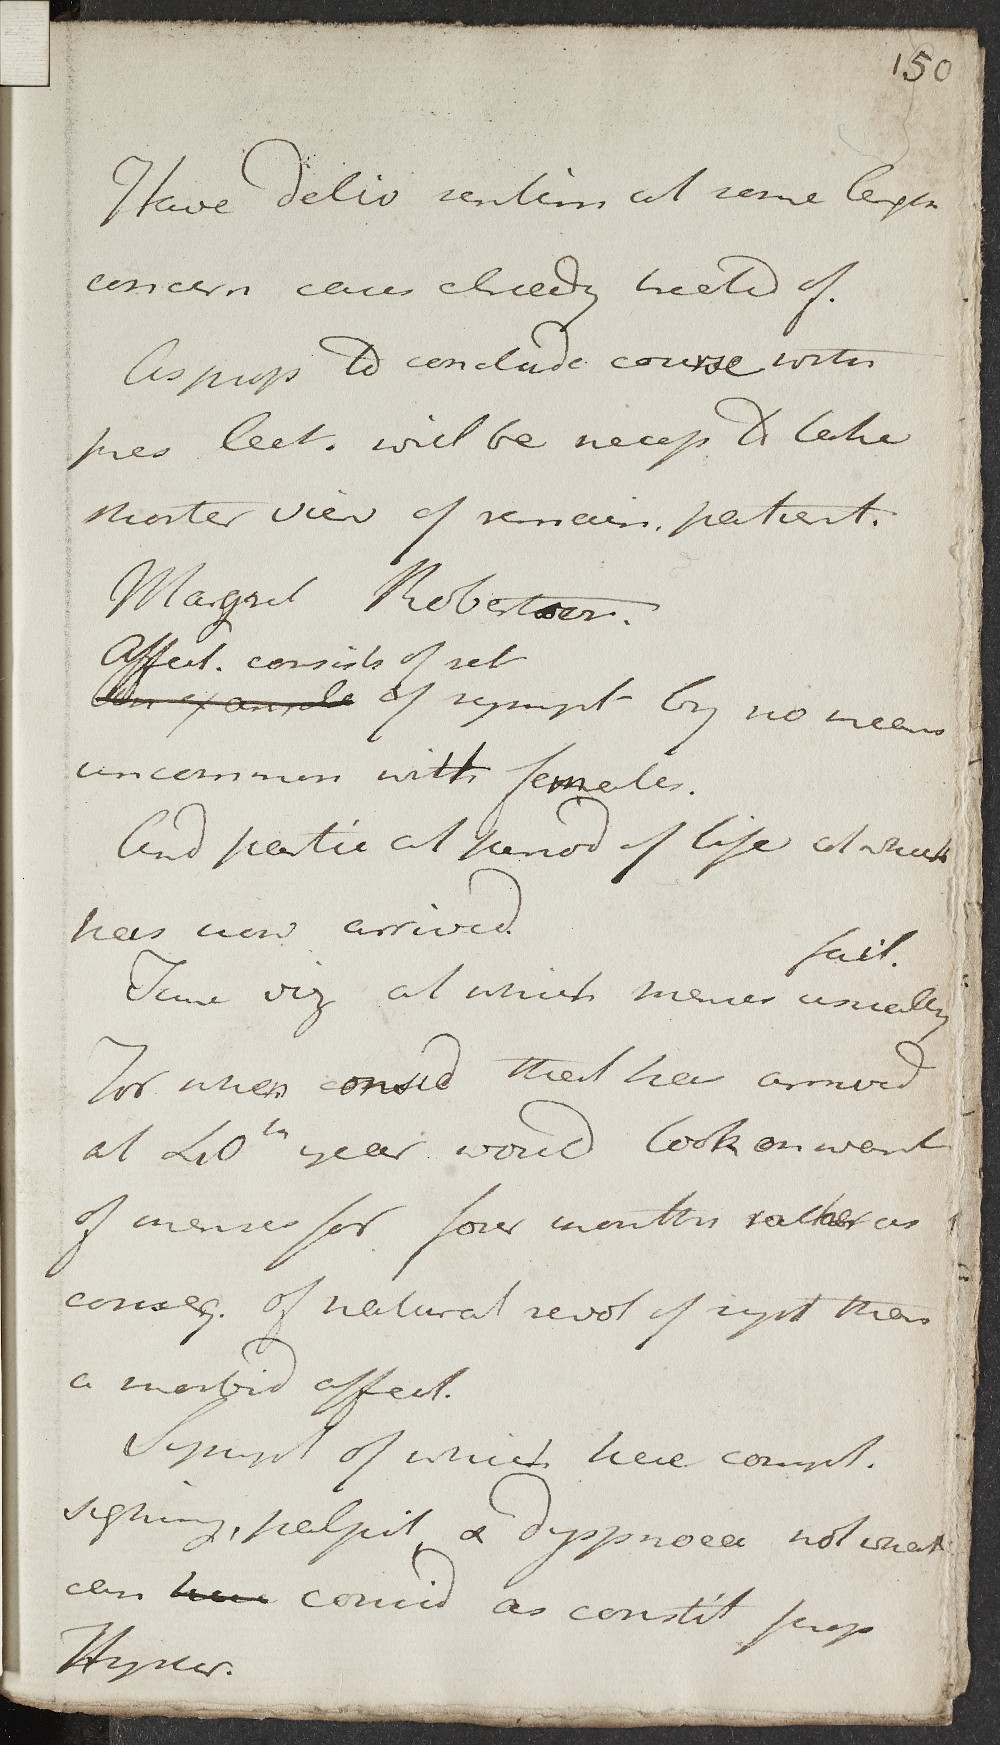 150
Have deliv sentim at some length
concern cases already treated of.
As prop to conclude course with
pres lect. will be necess. to take
shorter view of remain. patient.
Margret Robertson.
Affect. consists of set
An example of sympt by no means
uncommon with females.
And partic at period of life at which
has now arrived.
fail.
Time viz at which menses usually
For when consid that has arrived
at 40th year would look on want
of menses for four months rather as
conseq. of natural revol of syst than
a morbid affect.
Sympt of which here compl.
sighing, palpit, & dyspnoea not what
can have consid as constit prop
Hyster.